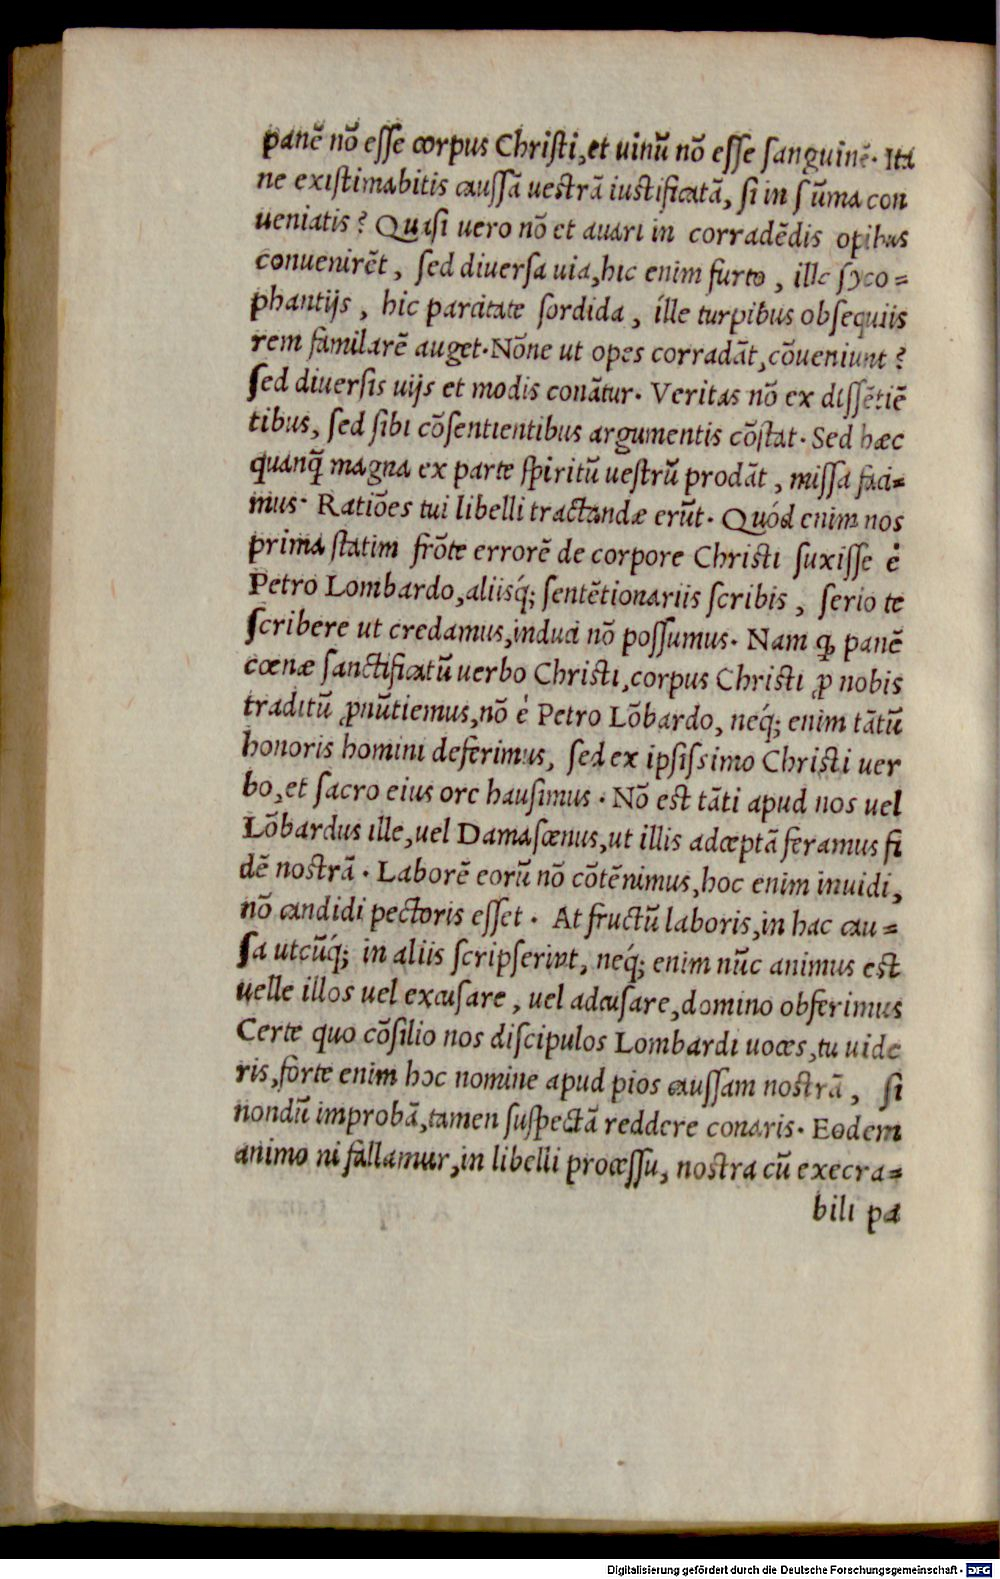 panē nō eſſe corpus Chriſti, et uinū nō eſſe ſanguinē. Ita
ne exiſtimabitis cauſſā ueſtrā iuſtificatā, ſi in ſūma con
ueniatis? Quaſi uero nō et auari in corradēdis opibus
conuenirēt, ſed diuerſa uia, hic enim furto, ille ſyco=
phantijs, hic parcitate ſordida, ille turpibus obſequiis
rem familarē auget. Nōne ut opes corradāt, cōueniunt?
ſed diuerſis uijs et modis conātur. Veritas nō ex diſſētiē
tibus, ſed ſibi cōſentientibus argumentis cōſtat. Sed hæc
quanq̄ magna ex parte ſpiritū ueſtrū prodāt, miſſa faci=
mus. Ratiōes tui libelli tractandæ erūt. Quód enim nos
prima ſtatim frōte errorē de corpore Chriſti ſuxiſſe è
Petro Lombardo, aliisq́; ſentētionariis ſcribis, ſerio te
ſcribere ut credamus, induci nō poſſumus. Nam ꝙ panē
cœnæ ſanctificatū uerbo Chriſti, corpus Chriſti ꝓ nobis
traditū ꝓnūtiemus, nō è Petro Lōbardo, neq́; enim tātū
honoris homini deferimus, ſed ex ipſiſsimo Chriſti uer
bo, et ſacro eius ore hauſimus. Nō eſt tāti apud nos uel
Lōbardus ille, uel Damaſcenus, ut illis adceptā feramus fi
dē noſtrā. Laborē eorū nō cōtēnimus, hoc enim inuidi,
nō candidi pectoris eſſet. At fructū laboris, in hac cau=
ſa utcūq́; in aliis ſcripſerint, neq́; enim nūc animus eſt
uelle illos uel excuſare, uel adcuſare, domino obferimus
Certe quo cōſilio nos diſcipulos Lombardi uoces, tu uide
ris, forte enim hoc nomine apud pios cauſſam noſtrā, ſi
nondū improbā, tamen ſuſpectā reddere conaris. Eodem
animo ni fallamur, in libelli proceſſu, noſtra cū execra=
bili pa
Digitalisierung gefördert durch die Deutsche Forschungsgemeinschaft - DFG